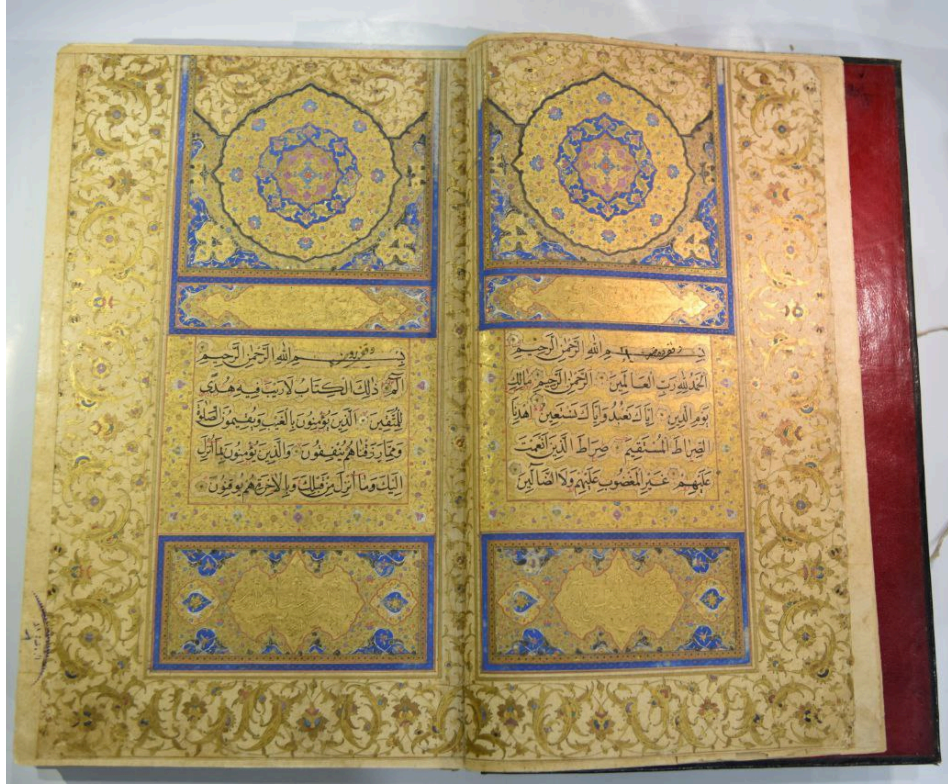 بسم الله الرحمن الرحيم
الحمد لله رب العالمين الرحمن الرحيم مالك
يوم الدين إياك نعبد وإياك نستعين اهدنا
الصراط المستقيم صراط الذين أنعمت
عليهم غير المغضوب عليهم ولا الضالين
بسم الله الرحمن الرحيم
الم ذلك الكتاب لا ريب فيه هدى
للمتقين الذين يؤمنون بالغيب ويقيمون الصلوة
ومما رزقناهم ينفقون والذين يؤمنون بما أنزل
إليك وما أنزل من قبلك وبالآخرة هم يوقنون